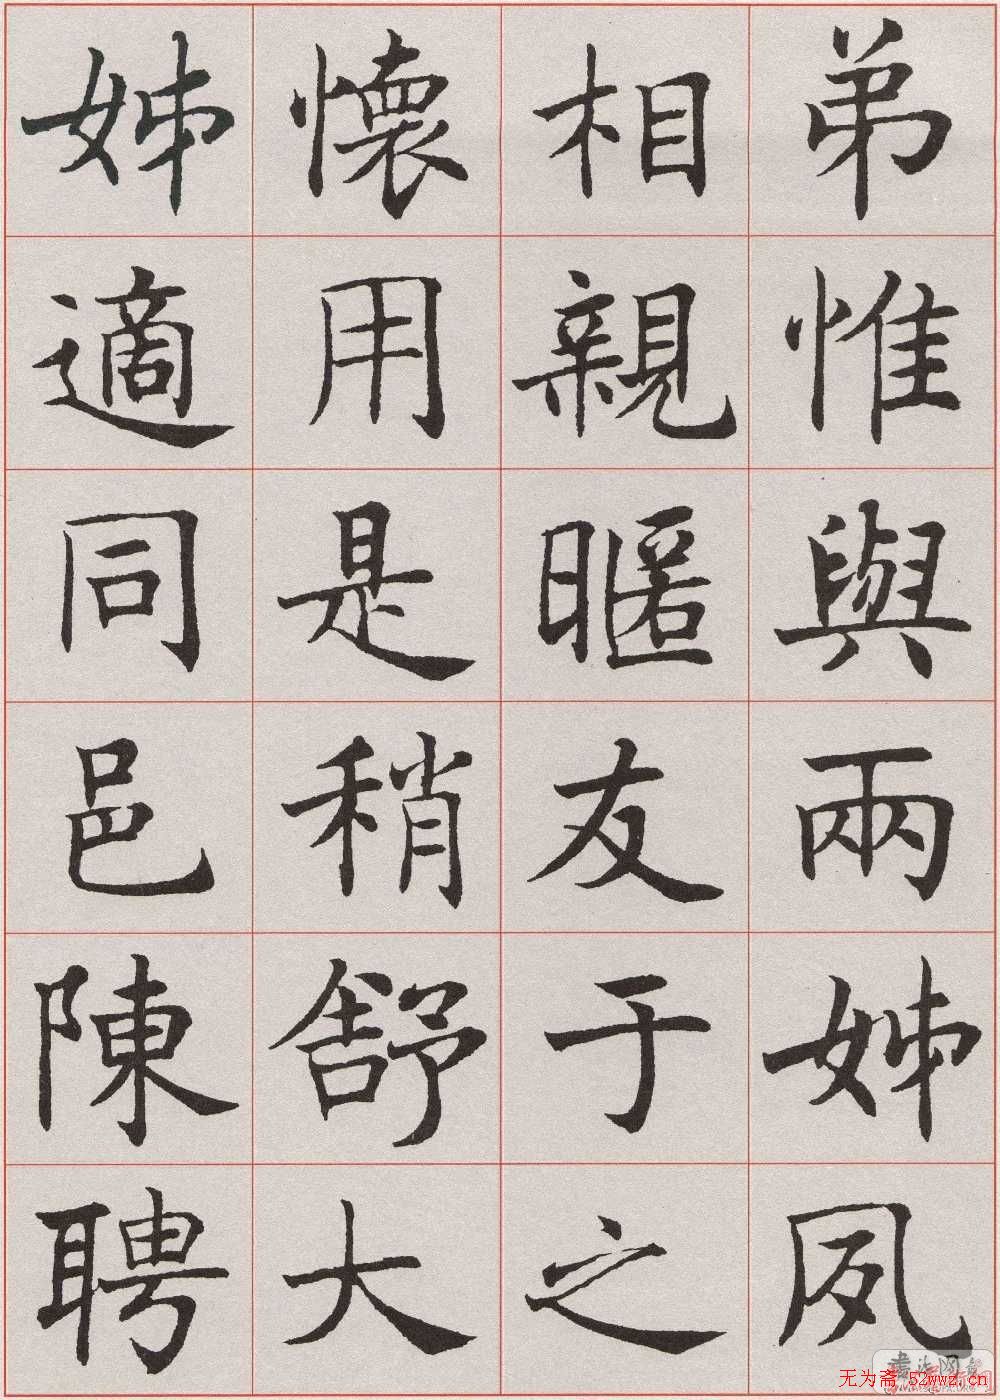 弟惟與兩姊夙
相親暱友于之
懷用是稍舒大
姊適同邑陳聘
无为斋 52wwz.cn